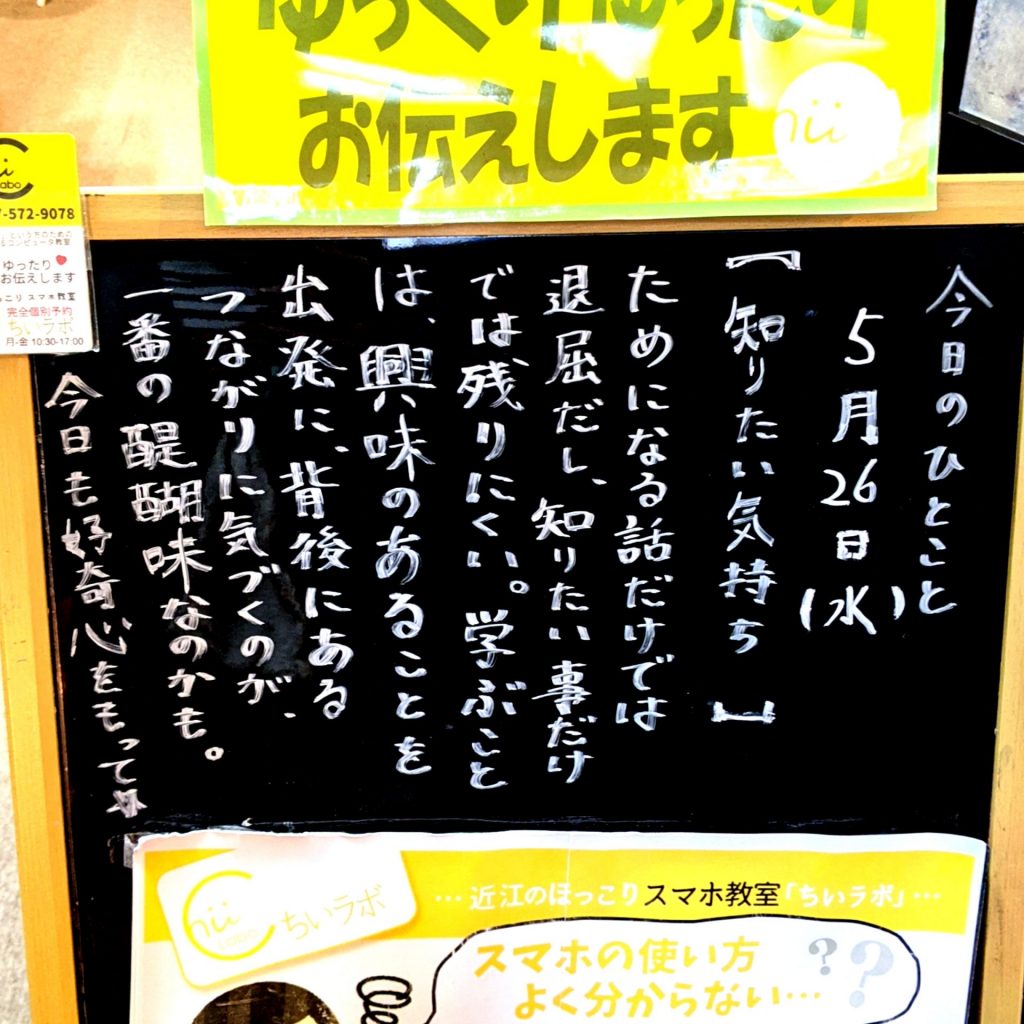 ゆっくり ゆったり
お伝えします
hii
abo
7-572-9078
という方のための
コンピュータ教室
ゆったり
お伝えします
こり スマホ教室
完全個別予約
ちいラボ
月-金 10:30-17:00
今日のひとこと
5月26日(水)
【知りたい気持ち】
ためになる話だけでは
退屈だし、知りたい事だけ
では残りにくい。学ぶこと
は、興味のあることを
出発に、背後にある
つながりに気づくのが、
一番の醍醐味なのかも。
今日も好奇心をもって☆
Chii
LABO
ちいラボ
…近江のほっこりスマホ教室「ちいラボ」…
スマホの使い方
よく分からない…
??